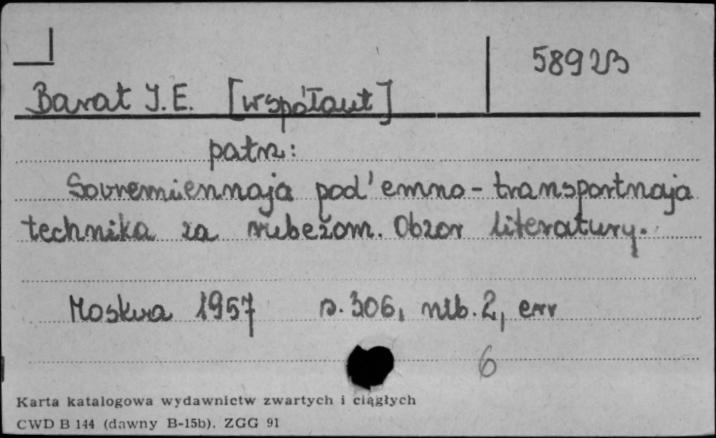 5892B
Barat J.E. [współaut]
patrz:
Sovremiennaja pod'emno-transportnaja
technika za rubežom. Obzor literatury.
Moskva 1957 s. 306, nlb. 2, err
6
Karta katalogowa wydawnictw zwartych i ciągłych
CWD B 144 (dawny B-15b). ZGG 91